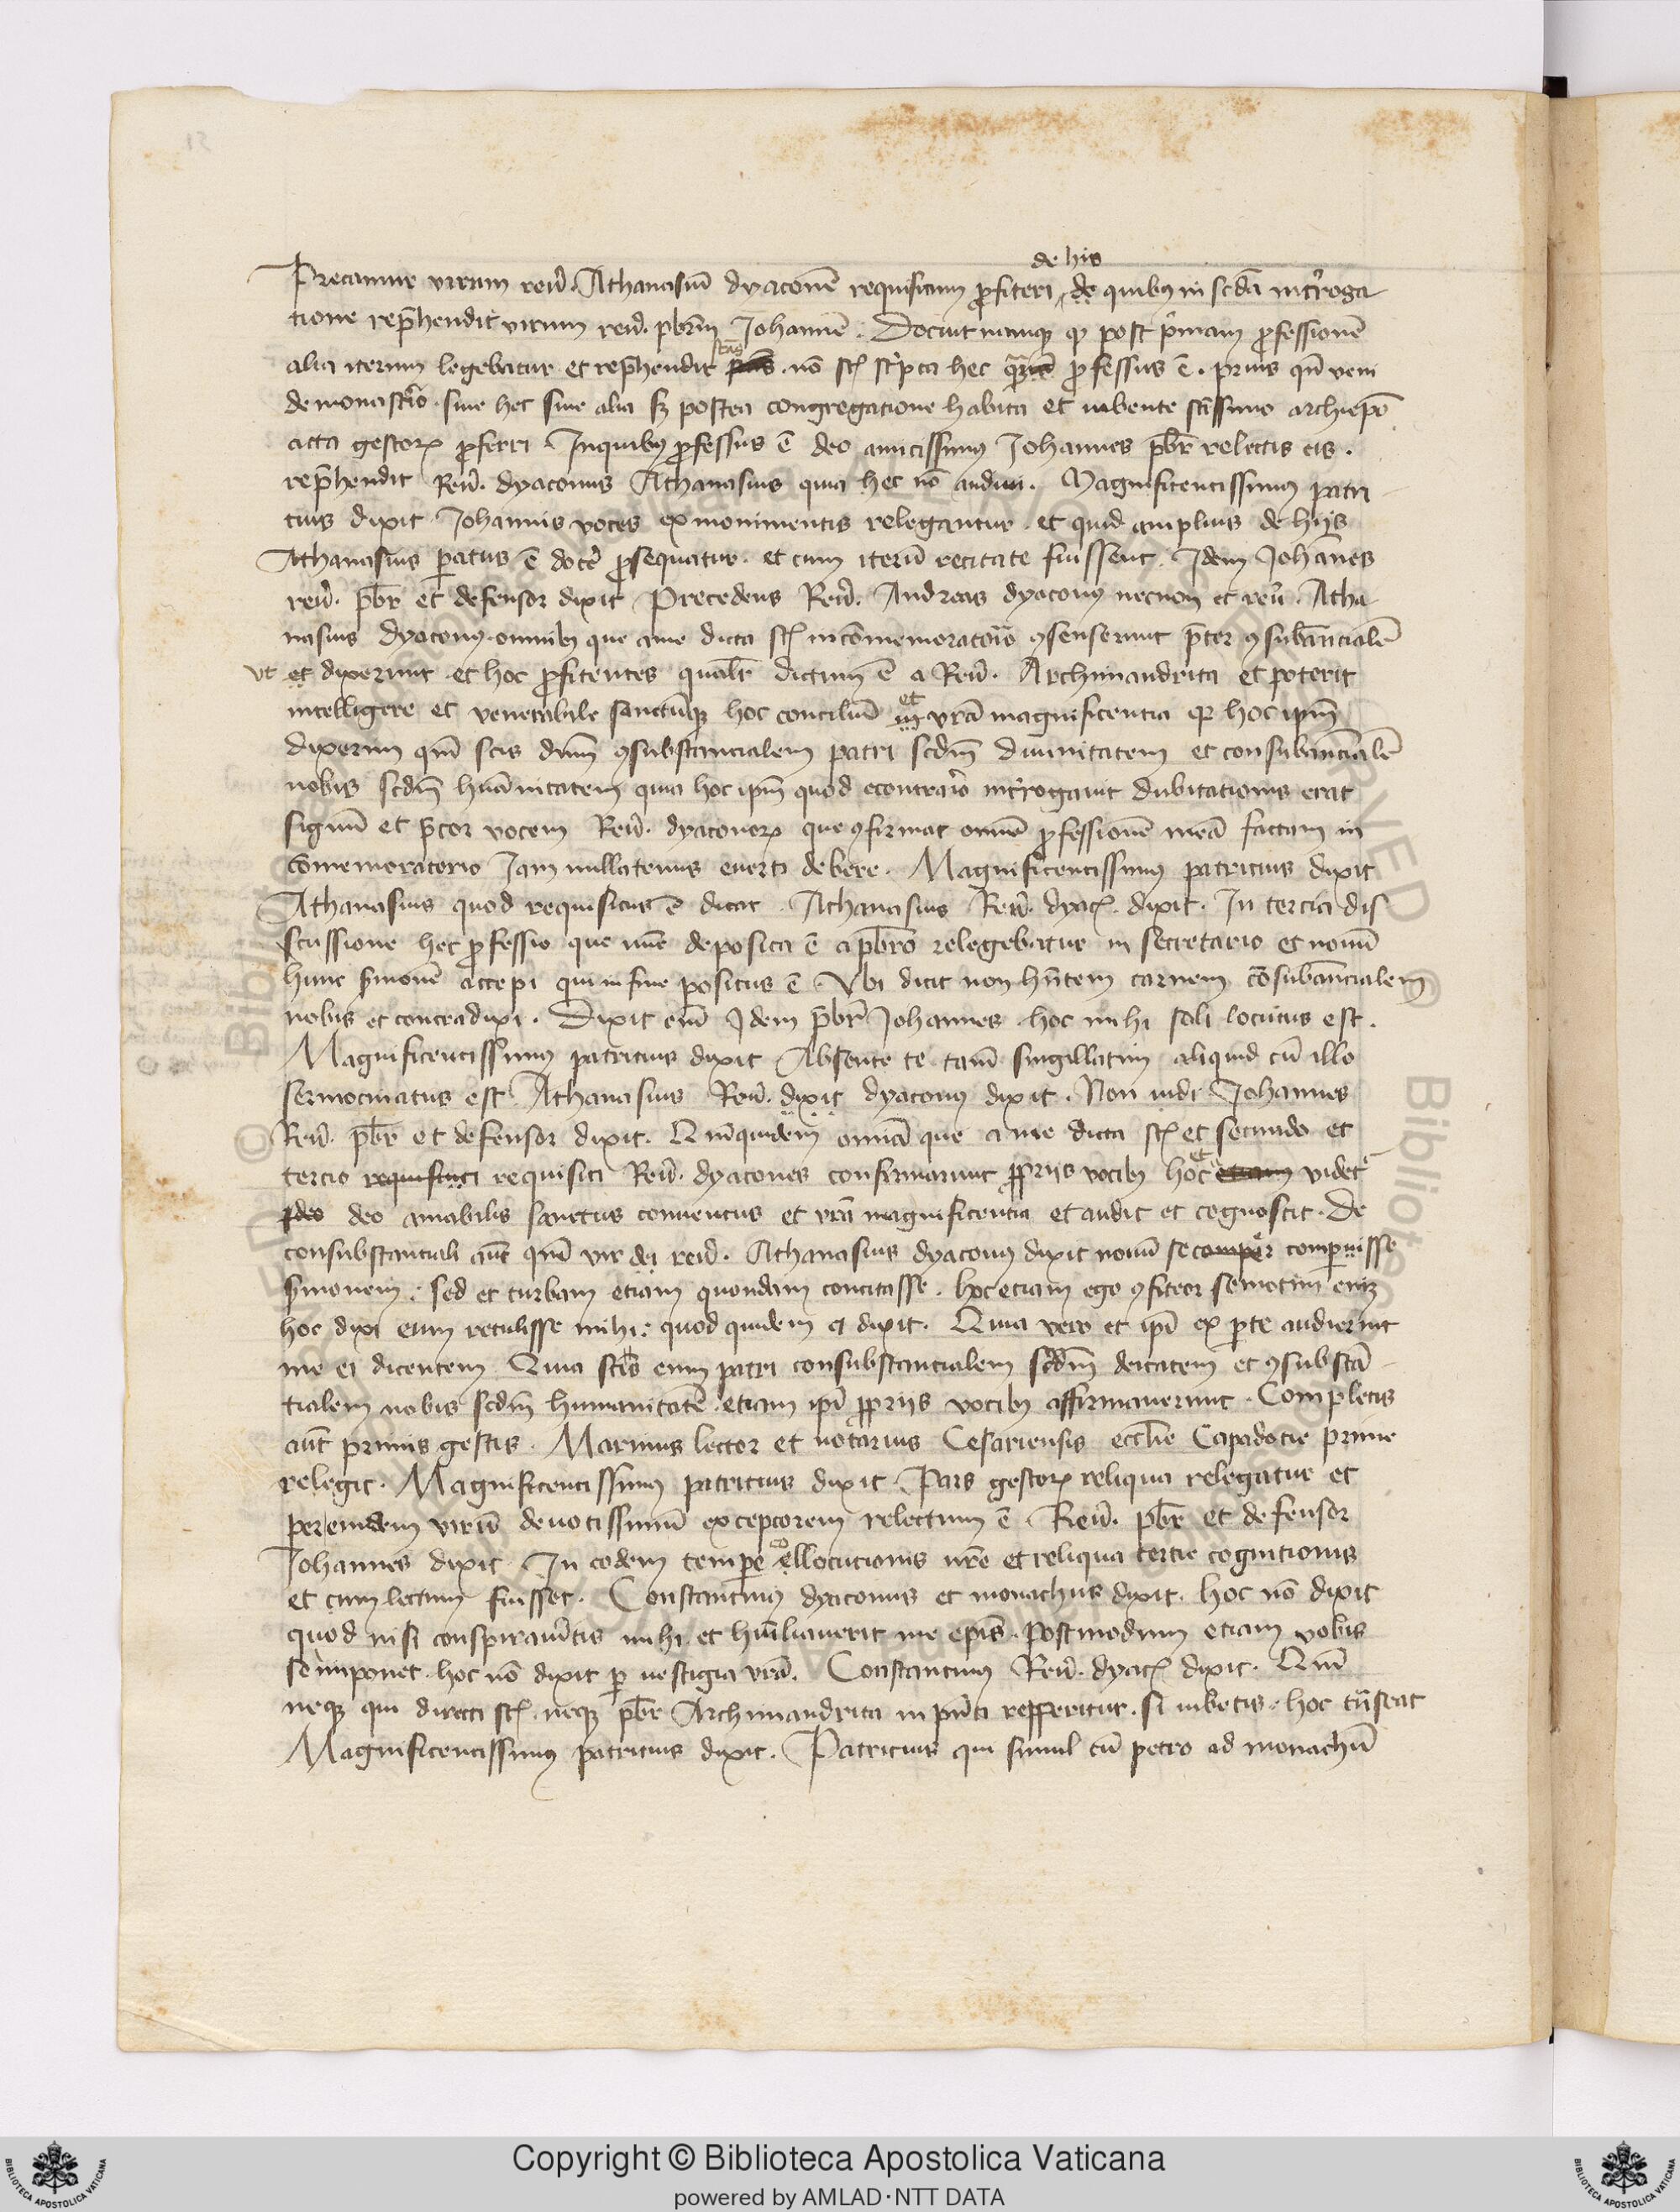 13
de his
Precamur virum reũ. Athanasiũ dyaconẽ requisitum ꝓfiteri de quibꝰ in scďa int'roga
tione rep̃hendit virum reũ. pbrm̃ Johannẽ. Docuit namqꝫ qꝫ post p'mam ꝓfessionẽ
alia iterum legebatur et rep̃hendit nõ st̃ sc'pta hec ꝓfessus ẽ. prius qñ veni
de monast'io. siue hec siue alia sꝫ postea congregatione habita et iubente sc̃issimo archiep̃o
acta gestoꝝ ꝓferri. Inquibꝰ ꝓfessus ẽ deo amicissimꝰ Johannes pbr̃ relectis eis.
rep̃hendit Reũ. dyaconus Athanasius quia hec nõ audiui. Magnificentissimꝰ patri
cius dixit Johannis voces ex monimentis relegantur. et quid amplius de hijs
Athanasius paratus ẽ docẽ ꝓsequatur. et cum iterũ recitate fuissent. Idem Johãnes
reũ. pbr̃ et defensor dixit Precedens Reũ. Andreas dyaconꝰ necnon et reũ. Atha
nasius dyaconꝰ omnibꝫ que a me dicta st̃ in cõmemorator̃io ꝯsenserunt p̃ter ꝯsubãncialẽ
vt et dixerunt et hoc ꝓfitentes qualr̃ dictum ẽ a Reũ. Archimandrita et poterit
et
intelligere et venerabile sanctũqꝫ hoc conciliũ in vrã magnificentia qꝫ hoc ipm̃
dixerim qm̃ scis dnm̃ ꝯsubstancialem patri scďm diuinitatem et consubãncialẽ
nobis scďm huãnitatem quia hoc ipm̃ quod econtrar̃io int'rogauit dubitationis erat
signũ et p̃cor vocem Reũ. dyaconoꝝ que ꝯfirmat omnẽ ꝓfessionẽ meã factam in
cõmemoratorio Jam nullatenus euerti debere. Magnificentissimꝰ patricius dixit
Athanasius quod requisitus ẽ dicat. Athanasius Reũ. dyac̃. dixit. In tercia dis
scussione hec ꝓfessio que nũc deposita ẽ a pbr̃o relegebatur in secretario et nouũ
hunc s̃monẽ accepi qui in fine positus ẽ. Vbi dicit non hñtem carnem cõsubãncialem
nobis et contradixi. Dixit em̃ Idem pbr̃ Johannes. hoc mihi soli locutus est.
Magnificentissimꝰ patricius dixit Absente te tam̃ singillatim aliquid cũ illo
sermocinatus est Athanasius Reũ. dixit dyaconꝰ dixit. Non uidi Johannes
Reũ. pbr̃ et defensor dixit. Qm̃quidem omnia que a me dicta st̃ et secundo et
tercio requisiti requisiti Reũ. dyacones confirmarunt ꝓprijs vocibꝫ hoc et etiam videt
deo amabilis sanctus conuentus et vrã magnificentia et audit et cognoscit. De
consubstanciali aũt qm̃ vir dei reũ. Athanasius dyaconꝰ dixit nouũ se comper comperuisse
s̃monem. sed et turbam etiam quondam concitasse. hoc etiam ego ꝯfiteor semotim enĩ
hoc dixi eum retulisse mihi. quod quidem et dixit. Quia vero et ipĩ ex ꝑte audierunt
me ei dicentem Quia scis eum patri consubstancialem scďm deitatem et ꝯsubstã
tialem nobis scďm humanitatẽ etiam ipĩ ꝓprijs vocibꝫ affirmauerunt. Completis
aũt primis gestis. Marinus lector et notarius Cesariensis eccl̃ie Capadocie prime
relegit. Magnificentissimꝰ patricius dixit Pars gestoꝝ reliqua relegatur et
per eundem virũ deuotissimũ exceptorem relectum ẽ Reũ. pbr̃ et defensor
Johannes dixit In eodem temꝑe ellocutionis nrẽ et reliqua tercie cognitionis
et cum lectum fuisset. Constantinꝰ dyaconus et monachus dixit. hoc nõ dixit
quod nisi conspiraũitis mihi. et hũiliauerit me ep̃is. Postmodum etiam vobis
se imponet. hoc nõ dixit ꝑ uestigia vrã. Constantinus Reũ. dyac̃ dixit. Qm̃
neqꝫ qui directi st̃. neqꝫ pbr̃ Archimandrita in pñti refferitur. si iubetis. hoc tñseat
Magnificentissimꝰ patricius dixit. Patricius qui simul cũ petro ad monachũ
© Biblioteca Apostolica Vaticana
Copyright © Biblioteca Apostolica Vaticana
powered by AMLAD·NTT DATA
BIBLIOTECA APOSTOLICA VATICANA
BIBLIOTECA APOSTOLICA VATICANA